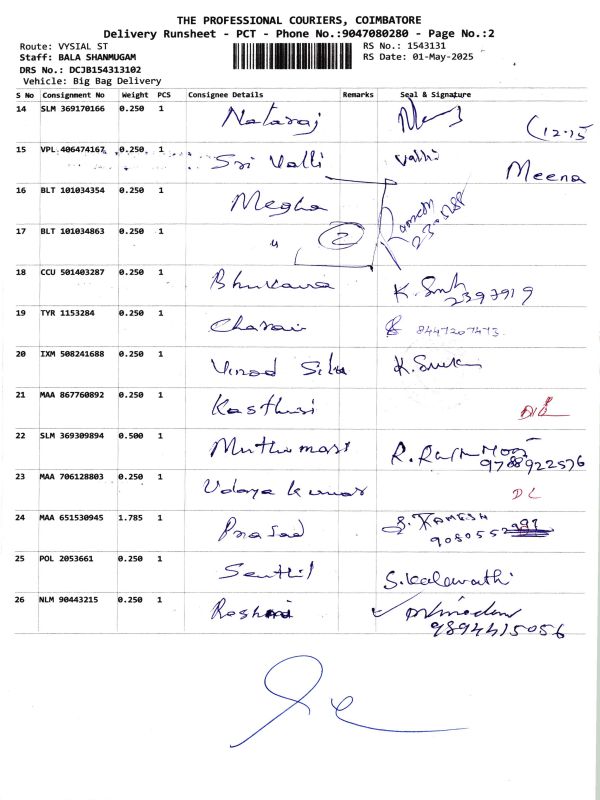 THE PROFESSIONAL COURIERS, COIMBATORE
Delivery Runsheet - PCT - Phone No.:9047080280 - Page No.:2
Route: VYSIAL ST
RS No.: 1543131
Staff: BALA SHANMUGAM
RS Date: 01-May-2025
DRS No.: DCJB154313102
Vehicle: Big Bag Delivery
S No Consignment No Weight PCS Consignee Details Remarks Seal & Signature
14 SLM 369170166 0.250 1 Nataraj (12.15
15 VPL 406474167 0.250 1 Sri Valli Valli Meena
16 BLT 101034354 0.250 1 Megha
17 BLT 101034863 0.250 1 " 2
18 CCU 501403287 0.250 1 Bhuvana
2397919
19 TYR 1153284 0.250 1 8447207473
20 IXM 508241688 0.250 1 Vinod
21 MAA 867760892 0.250 1 Kasthuri
22 SLM 369309894 0.500 1 Muthumari
9788922576
23 MAA 706128803 0.250 1 Udaya Kumar DL
24 MAA 651530945 1.785 1 Prasad S. RAMESH
25 POL 2053661 0.250 1 Senthil S. Kalavathi
26 NLM 90443215 0.250 1 Roshni
9894415056